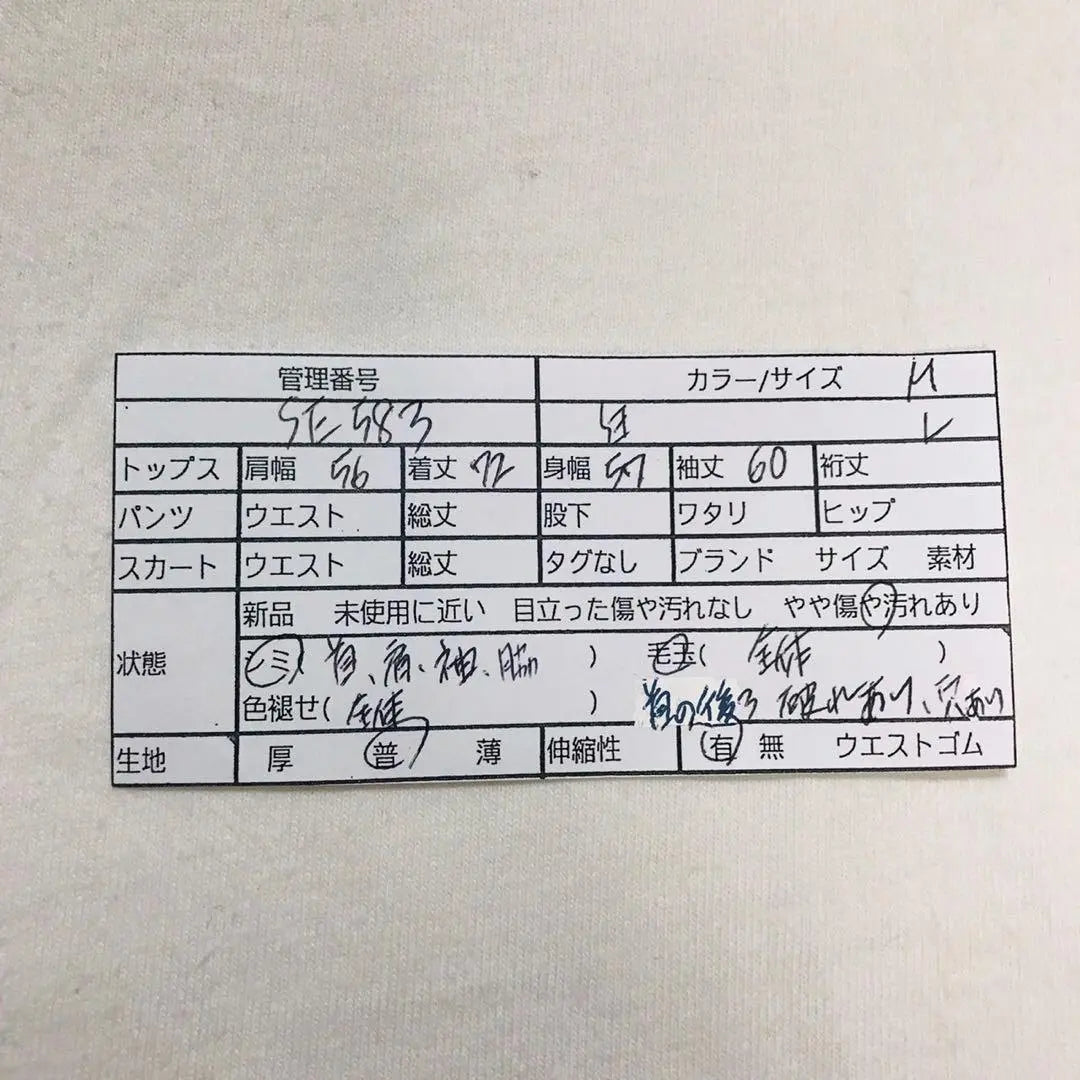 管理番号 カラー/サイズ M
SE 583 L
トップス 肩幅 56 着丈 72 身幅 57 袖丈 60 裄丈
パンツ ウエスト 総丈 股下 ワタリ ヒップ
スカート ウエスト 総丈 タグなし ブランド サイズ 素材
新品 未使用に近い 目立った傷や汚れなし やや傷や汚れあり
状態 シミ( 首、肩、袖、脇 ) 毛玉( 全体 )
色褪せ( 全体 ) 首の後ろ 破れあり、穴あり
生地 厚 普 薄 伸縮性 有 無 ウエストゴム